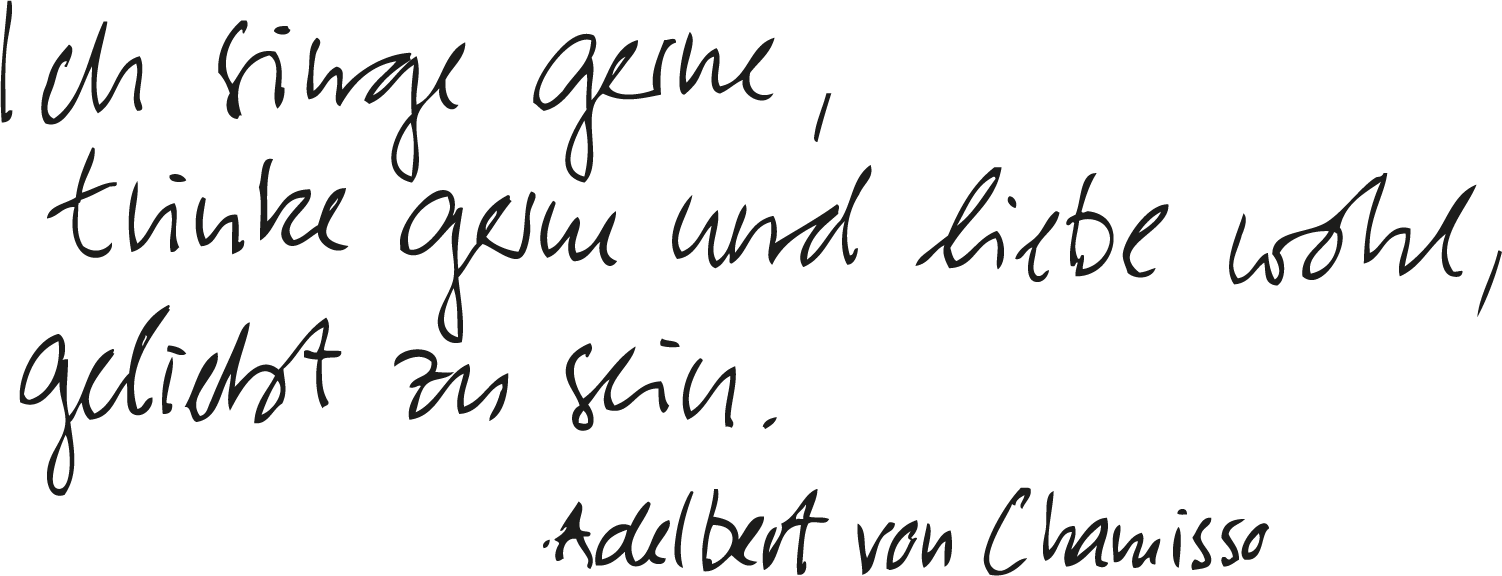 Ich singe gerne,
trinke gern und liebe wohl,
geliebt zu sein.
Adelbert von Chamisso